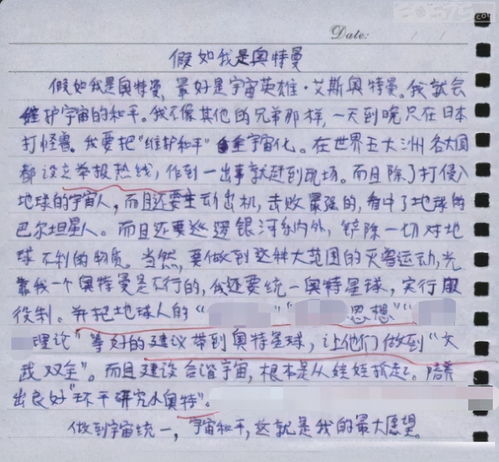 Date: / /
假如我是奥特曼
假如我是奥特曼,最好是宇宙英雄·艾斯奥特曼。我就会
维护宇宙的和平。我不像其他的兄弟那样,一天到晚只在日本
打怪兽。我要把"维护和平" 宇宙化。在世界五大洲各大国
都设立举报热线,作到一出事就赶到现场。而且除了打侵入
地球的宇宙人,而且还要主动出机,击败最强的,看中了地球的
巴尔坦星人。而且还要巡逻银河系内外,铲除一切对地
球不利的物质。当然,要做到这种大范围的灭兽运动,光
靠我一个奥特曼是不行的,我还要统一奥特星球,实行服
役制。并把地球人的" 思想""
理论"等好的建议带到奥特星球,让他们做到"文
武双全"。而且建设合谐宇宙,根本是从娃娃抓起。培养
出良好"环平研究小奥特"。
做到宇宙统一,宇宙和平,这就是我的最大愿望。